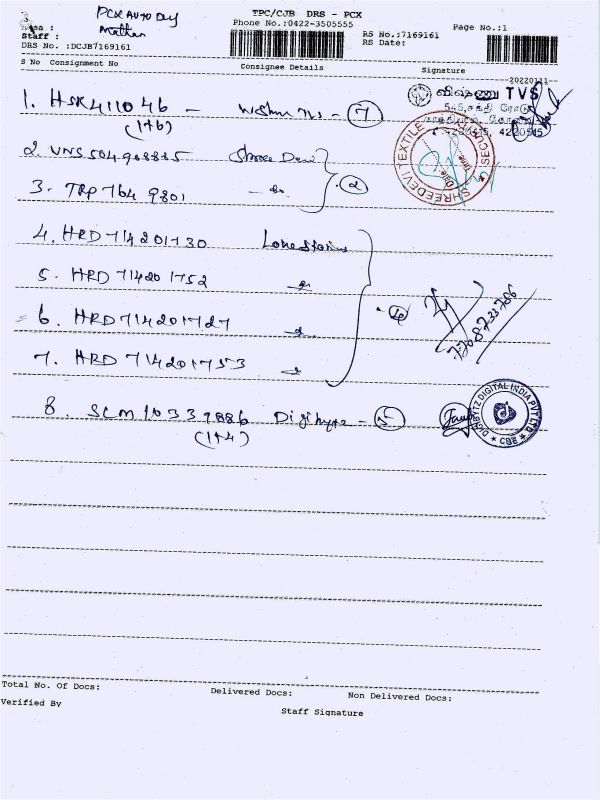 PCX AUTO Dly
TPC/CJB DRS - PCX
Phone No.:0422-3505555
Page No.:1
Area :
Staff :
RS No.:7169161
RS Date:
DRS No. :DCJB7169161
S No Consignment No Consignee Details Signature
20220111
விஷ்ணு TVS
545,சக்தி ரோடு
4220515
1. HSK411046 - 7
(1+6)
2. VNS504908885 Shree Devi
3. TRP 764 9801 - do 2
SHREEDEVI TEXTILE
Date
Time
4. HRD 714201730
5. HRD 714201752
6. HRD714201727
7. HRD 714201753
7708733786
8. SCM 10339886 Digihype - 5
(1+4)
DIGITAL INDIA PVT LTD
* CBE *
Total No. Of Docs: Delivered Docs: Non Delivered Docs:
Verified By
Staff Signature